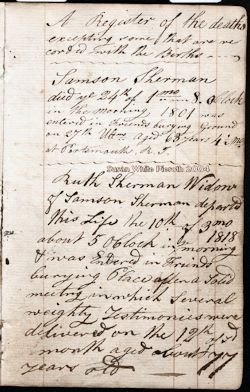 A Register of the deaths
excepting some that are re
corded with the Births
Samson Sherman
died ye 24th of 1 mo 8 oClock
in the morning 1801 was
intered in Friends burying Ground
on 27th aged 63 years 4 mo
at Portsmouth R. I.
Susan White Pieroth 2004
Ruth Sherman Widow
of Samson Sherman departed
this Life the 10th of 3 mo
1818
about 5 oClock in ye morning
& was Entered in Friends
burying Place after a Solid
meeting in which Several
weighty Testimonies were
delivered on the 12th of sd
month aged about 77
years old